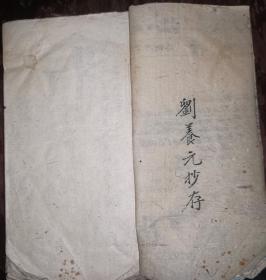 劉養元抄存